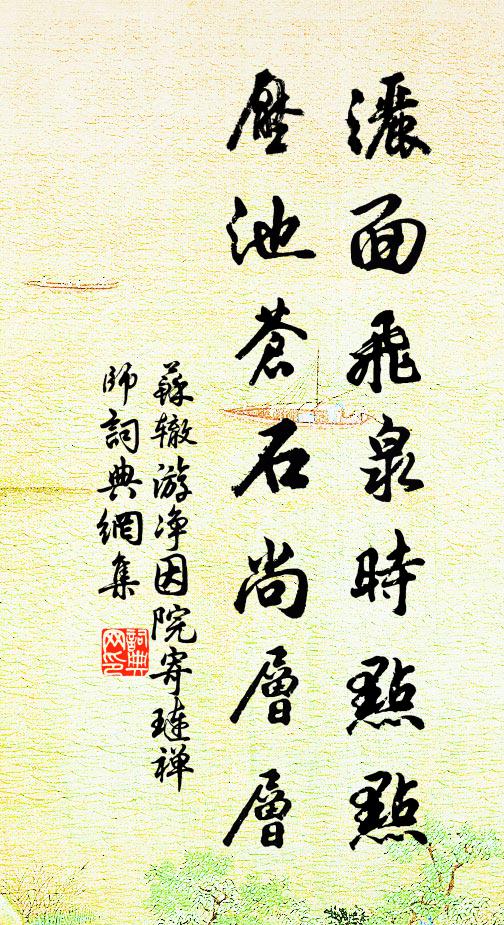 灑面飛泉時點點
壓池蒼石尚層層
蘇辙游净因院寄璉禅
師詞典網集
詞典
网印